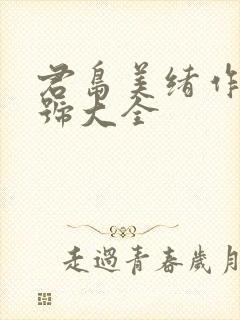 君島美绪作
號大全
走過青春歲月